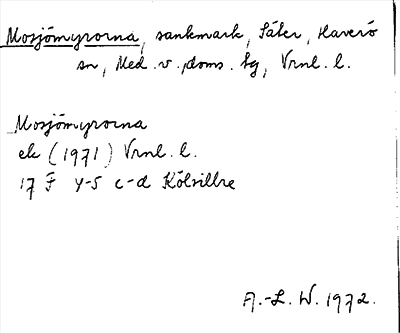 Mosjömyrorna, sankmark, Säter, Haverö
sn, Med. v. doms. tg, Vrnl. l.
Mosjömyrorna
ek (1971) Vrnl. l.
17 F y-5 c-d Kölsillre
A.-L. W. 1972.